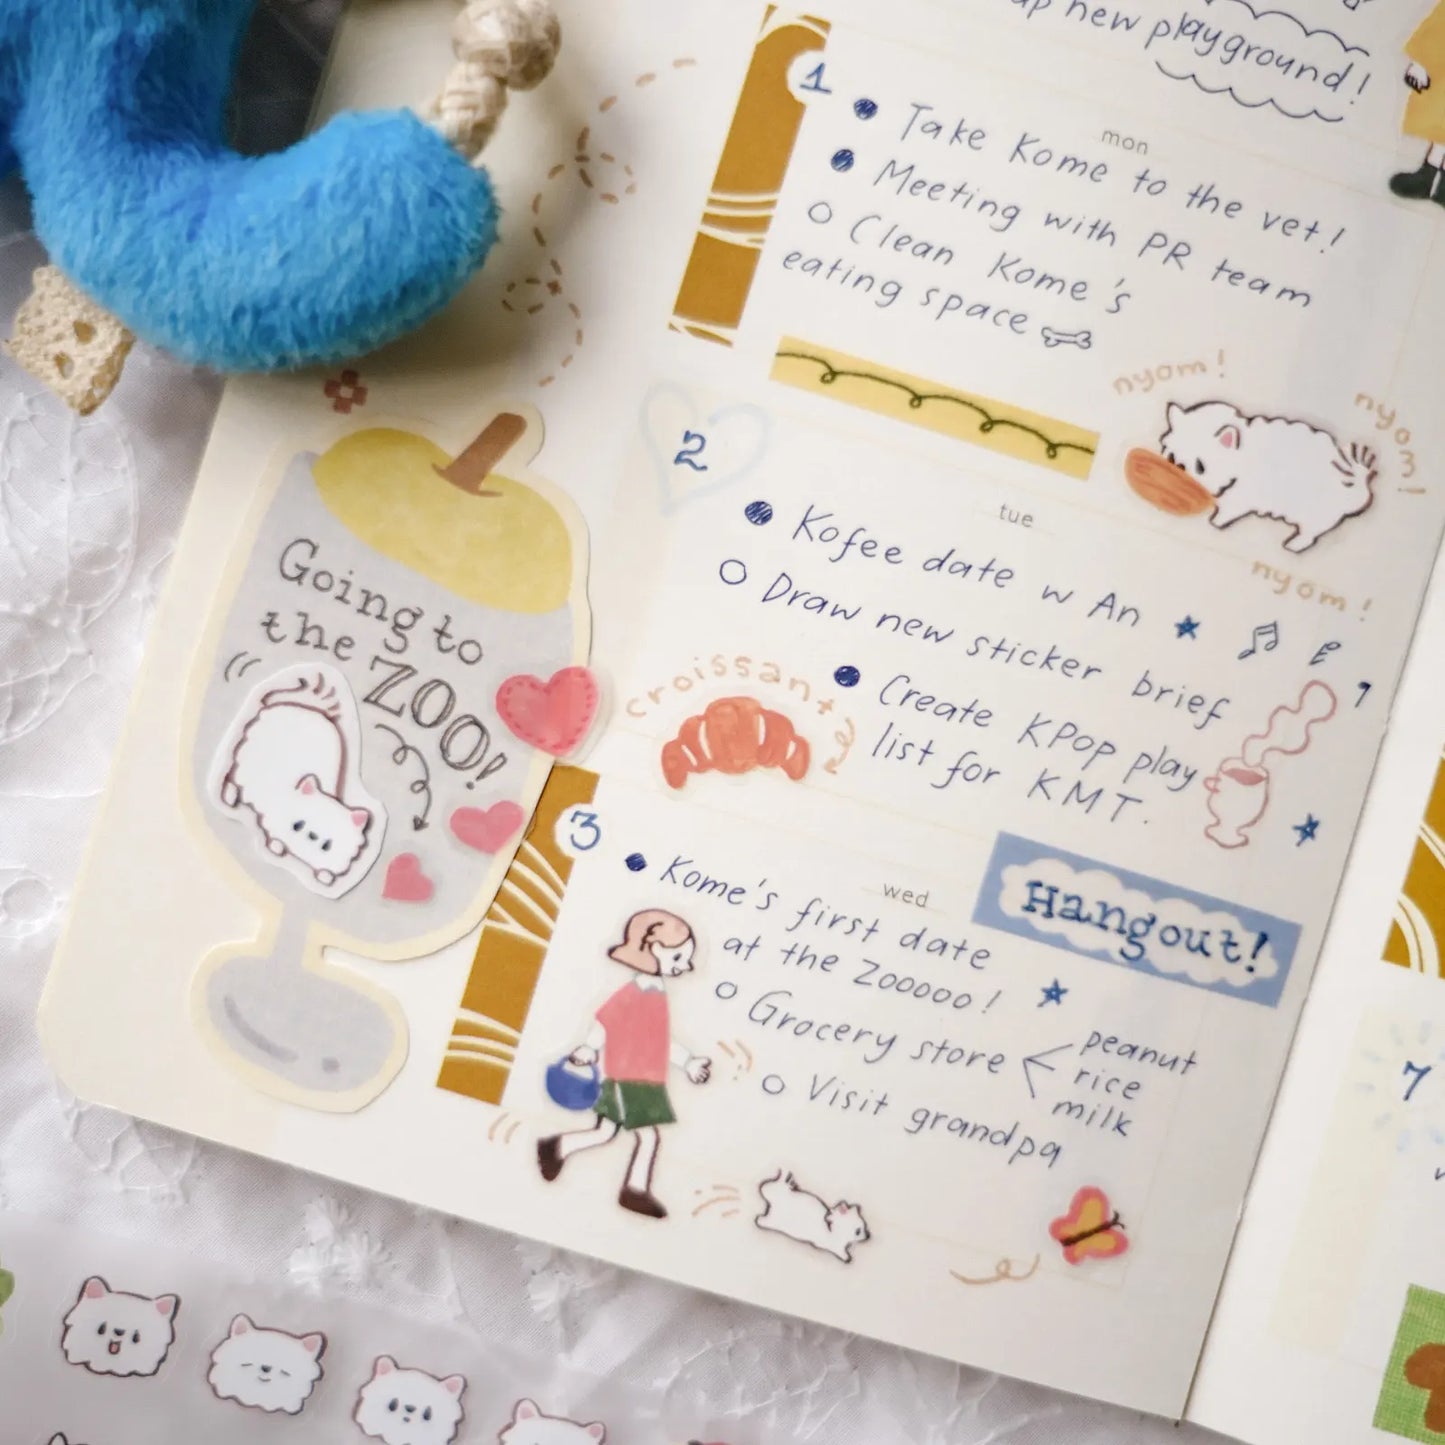 up new playground!
1
mon
Take Kome to the vet!
Meeting with PR team
Clean Kome's
eating space
nyom!
nyom!
nyom!
2
tue
Kofee date w An
Draw new sticker brief
Create KPop play
list for KMT.
croissant
Going to
the ZOO!
3
wed
Hangout!
Kome's first date
at the Zooooo!
Grocery store
peanut
rice
milk
Visit grandpa
7